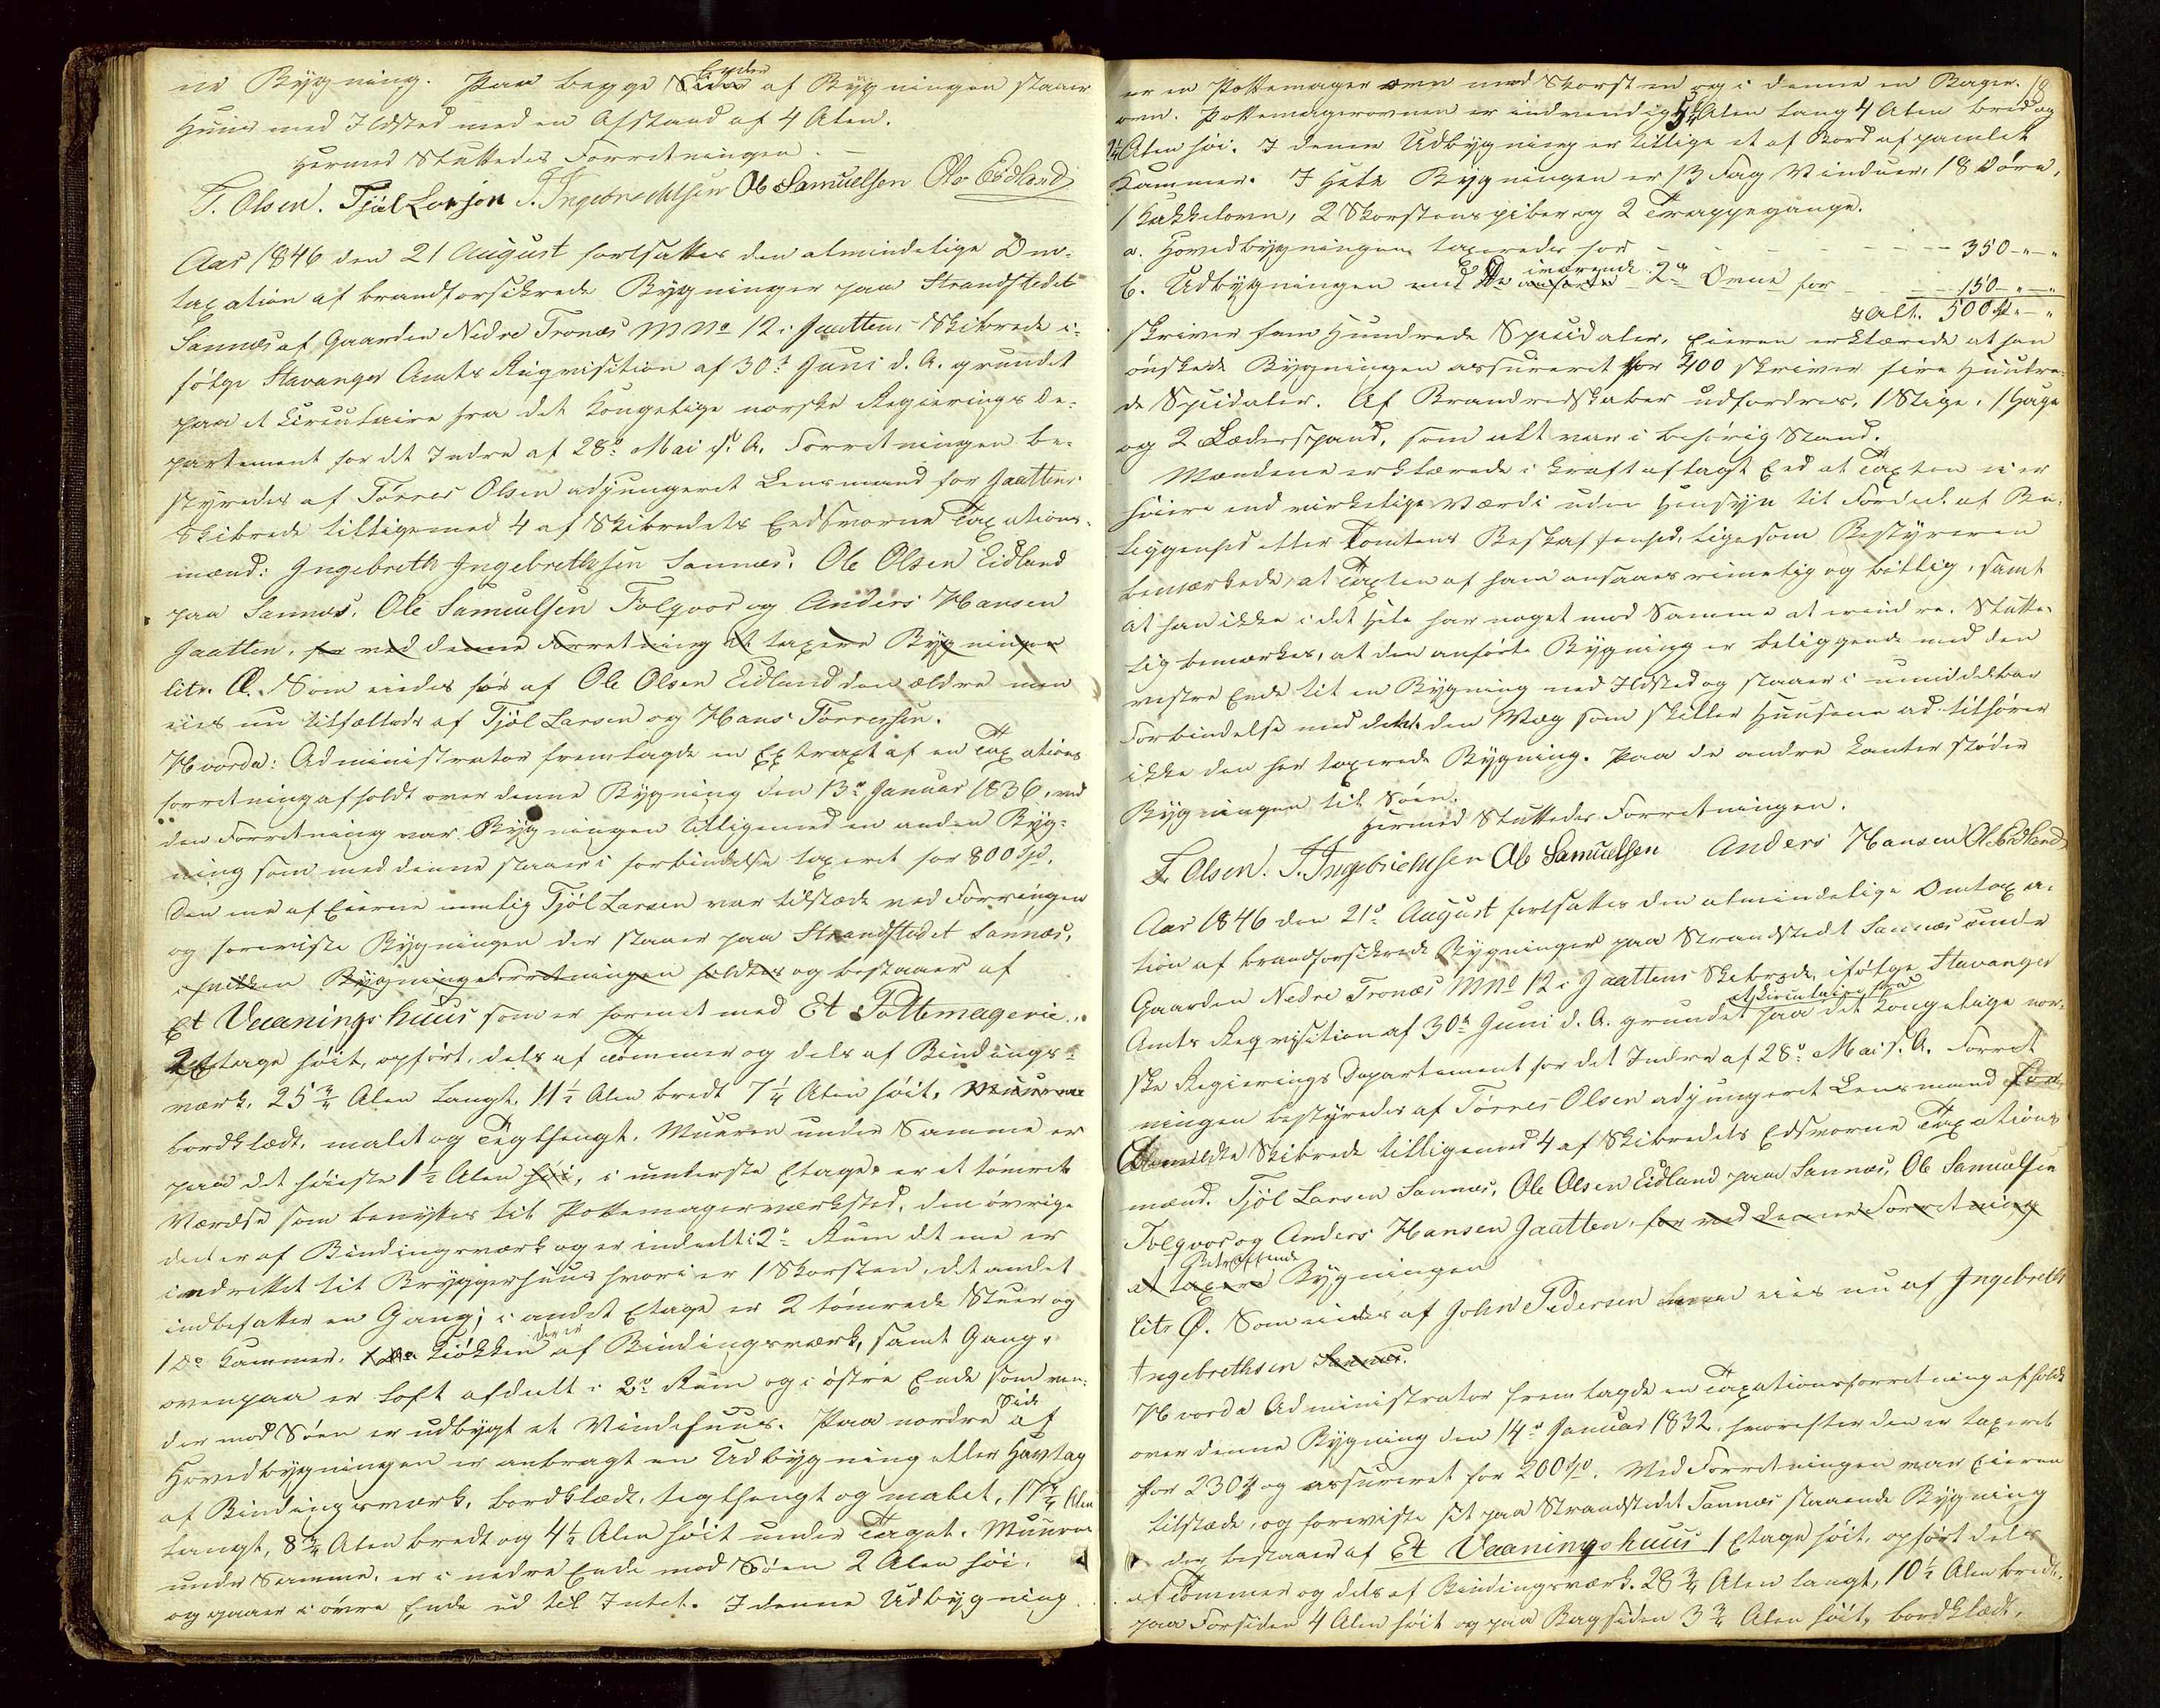 ne Bygning. Paa begge Sider Ender af Bygningen staaer
Huus med Ildsted med en Afstand af 4 Alen.
Hermed Sluttedes Forretningen. —
T. Olsen. Tjøl Larsen I. Ingebrechtsen Ole Samuelsen Ole Eidland
Aar 1846 den 21 August fortsattes den almindelige Om-
taxation af brandforsikrede Bygninger paa Strandstedet
Sannæs af Gaarden Nedre Tronæs MNo 12 i Jaattens Skibrede i-
følge Stavanger Amts Reqvisition af 30t Juni d. A. grundet
paa et Circulaire fra det Kongelige norske Regierings De-
partement for det Indre af 28de Mai s. A. Forretningen be-
styredes af Tørres Olsen adjungeret Lensmand for Jaattens
Skibrede tilligemed 4 af Skibredets Eedsvorne Taxations-
mænd: Ingebreth Ingebrethsen Sannæs, Ole Olsen Eidland
paa Sannæs, Ole Samuelsen Folqvor og Anders Hansen
Jaatten, for ved denne Forretning at taxere Bygningen
litr. Æ. Som eiedes før af Ole Olsen Eidland den ældre men
eies nu tilfælleds af Tjøl Larsen og Hans Tørressen.
Hvorda: Administrator fremlagde en Extract af en Taxations
forretning afholdt over denne Bygning den 13de Januar 1836, ved
den Forretning var Bygningen tilligemed en anden Byg-
ning som med denne staaer i forbindelse taxeret for 800 Spd.
Den ene af Eierne nemlig Tjøl Larsen var tilstæde ved Forretningen
og foreviste Bygningen der staaer paa Strandstedet Sannæs,
i hvilken Bygning Forretningen holdtes og bestaaer af
Et Vaaningshuus som er forenet med Et Pottemagerie.
2 Etage høit, opført, dels af Tømmer og dels af Bindings-
værk, 25 3/4 Alen langt, 11 1/2 Alen bredt 7 1/4 Alen høit,
bordklædt, malet og Tegthengt. Muuren under Samme er
paa det høieste 1 1/2 Alen høi, i underste Etage er et tømret
Værelse som benyttes til Pottemagerværksted, den øvrige
deel er af Bindingsværk og er indeelt i 2de Rum det ene er
indrettet til Bryggerhuus hvori er 1 Skorsten, det andet
indbefatter en Gang; i andet Etage er 2 tømrede Stuer og
1 do Kammer, Kiøkken der er af Bindingsværk, samt Gang,
ovenpaa er Loft afdeelt i 2de Rum og i østre Ende som ven-
der mod Søen er udbygt et Vindehuus. Paa nordre Side af
Hovedbygningen er anbragt en Udbygning eller Havtag
af Bindingsværk, bordklædt, tegthengt og malet, 17 3/4 Alen
langt, 8 3/4 Alen bredt og 4 1/2 Alen høit under Taget. Muuren
under Samme, er i nedre Ende mod Søen 2 Alen høi,
og gaaer i øvre Ende ud til Intet. I denne Udbygning
18
er en Pottemager ovn med Skorsten og i denne en Bager-
ovn. Pottemagerovnen er indvendig 5 1/4 Alen lang 4 Alen bred og
Alen høi. I denne Udbygning er tillige et af Bord afpanelet
Kammer. I Hele Bygningen er 13 Fag Vinduer, 18 Døre,
1 Kakkelovn, 2 Skorstenspiber og 2 Trappegange.
a. Hovedbygningen taxeredes for - - - - - - - 350 - " - "
b. Udbygningen med de anførte iværende 2de Ovne for - - - 150 - " - "
I Alt. 500 Spd " - "
skriver fem Hundrede Speciedaler, Eieren erklærede at han
ønskede Bygningen assureret for 400 skriver fire Hundre-
de Speciedaler. Af Brandredskaber udfordres, 1 Stige, 1 Hage
og 2 Læderspand, som alt var i behørig Stand.
Mændene erklærede i kraft aflagt Eed at Taxten ei er
høiere end virkelige Værdi uden Hensyn til Fordeel af Be-
liggenhed eller Tomtens Beskaffenhed, ligesom Bestyreren
bemærkede, at Taxten af ham ansaaes rimelig og billig, samt
at han ikke i det Hele har noget mod Samme at erindre. Slutte-
lig bemærkes, at den anførte Bygning er beliggende med den
vestre Ende til en Bygning med Ildsted og staaer i umiddelbar
Forbindelse med dette, den Væg som skiller Huusene ad tilhører
ikke den her taxerede Bygning. Paa de andre Kanter støder
Bygningen til Søen.
Hermed Sluttedes Forretningen.
T. Olsen. I. Ingebrichtsen Ole Samuelsen Anders Hansen Ol. Eidland
Aar 1846 den 21de August fortsattes den almindelige Omtaxa-
tion af brandforsikrede Bygninger paa Strandstedet Sannæs under
Gaarden Nedre Tronæs MNo 12 i Jaattens Skibrede, ifølge Stavanger
Amts Reqvisition af 30te Juni d. A. grundet paa et Circulaire fra det Kongelige nor-
ske Regierings Departement for det Indre af 28de Mai s. A. Forret
ningen bestyredes af Tørres Olsen adjungeret Lensmand for
bemeldte Skibrede tilligemed 4 af Skibredets Edsvorne Taxations
mænd. Tjøl Larsen Sannæs, Ole Olsen Eidland paa Sannæs, Ole Samuelsen
Folqvor og Anders Hansen Jaatten, for ved denne Forretning
at taxere Betræffende Bygningen
litr Ø. Som eiedes af John Pedersen eies nu af Ingebreth
Ingebrethsen Sannæs.
Hvorda Administrator fremlagde en Taxationsforretning afholdt
over denne Bygning den 14de Januar 1832, hvorefter den er taxeret
for 230 Spd og assureret for 200 Spd. Ved Forretningen var Eieren
tilstæde, og foreviste sit paa Strandstedet Sannæs staaende Bygning
der bestaaer af Et Vaaningshuus 1 Etage høit, opført dels
af Tømmer og dels af Bindingsværk. 28 3/4 Alen langt, 10 1/2 Alen bredt,
paa Forsiden 4 Alen høit og paa Bagsiden 3 3/4 Alen høit, bordklædt,